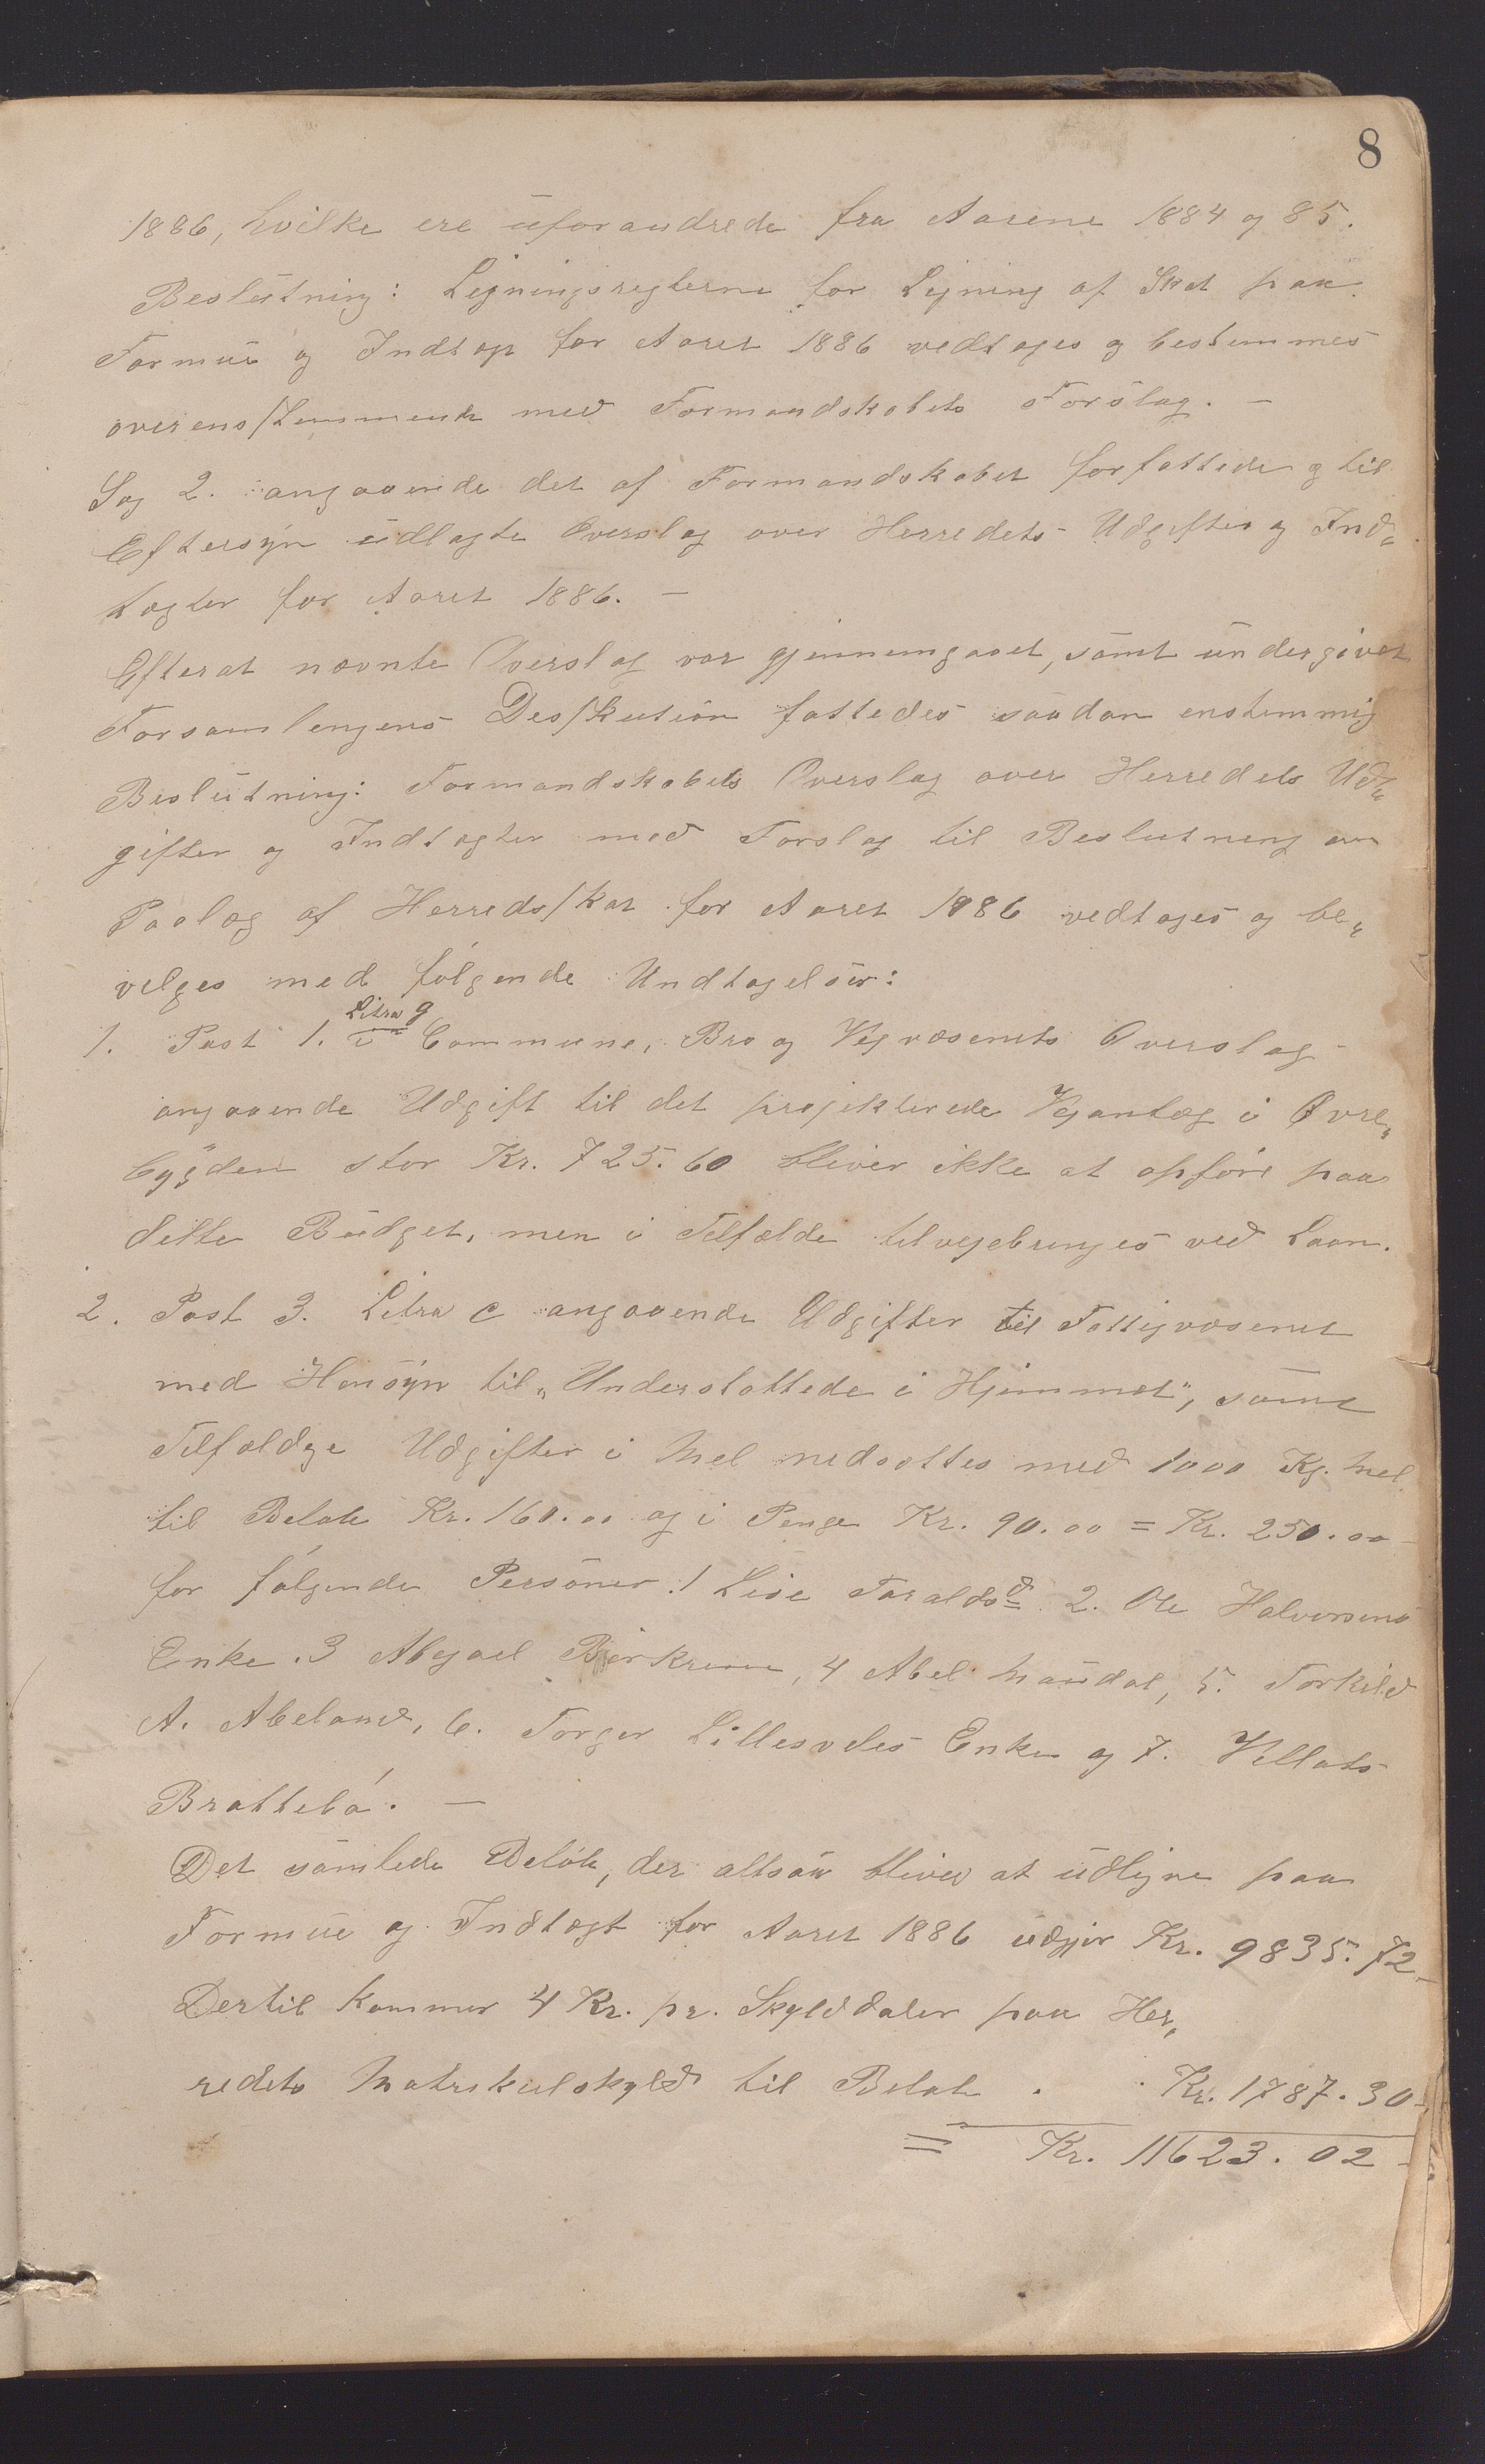 8
1886, hvilke ere uforandrede fra Aarene 1884 og 85.
Beslutning: Ligningsreglerne for Ligning af Skat paa
Formue og Indtægt for Aaret 1886 vedtages og bestemmes
overensstemmende med Formandskabets Forslag. —
Sag 2. angaaende det af Formandskabet forfattede og til
Eftersyn udlagte Overslag over Herredets Udgifter og Ind„
tægter for Aaret 1886. —
Efterat nævnte Overslag var gjennemgaaet, samt undergivet
Forsamlingens Deskution fattedes saadan enstemmig
Beslutning: Formandskabets Overslag over Herredets Ud„
gifter og Indtægter med Forslag til Beslutning om
Paalæg af Herredsskat for Aaret 1886 vedtages og be„
vilges med følgende Undtagelser:
1. Post 1. Litra g i Commune, Bro og Vejvæsenets Overslag
angaaende Udgift til det projekterede Vejanlæg i Øvre„
bygden stor Kr. 725.60 bliver ikke at opføre paa
dette Budget, men i Tilfælde tilvejebringes ved Laan.
2. Post 3. Litra c angaaende Udgifter til Fattigvæsenet
med Hensyn til „Understøttede i Hjemmet", samt
Tilfældige Udgifter i Mel nedsættes med 1000 Kg. Mel
til Beløb Kr. 160.00 og i Penge Kr. 90.00 = Kr. 250.00
for følgende Personer: 1 Lise Taraldsd 2. Ole Halvorsens
Enke. 3 Abigael Birkrem, 4 Abel Maudal, 5. Torkild
A. Abeland, 6. Torger Lillesveles Enke og 7. Villats
Brattebø. —
Det samlede Beløb, der altsaa bliver at udligne paa
Formue og Indtægt for Aaret 1886 udgjør Kr. 9835.72
Dertil kommer 4 Kr. pr. Skylddaler paa Her„
redets Matrikulskyld til Beløb . Kr. 1787.30
= Kr. 11623.02